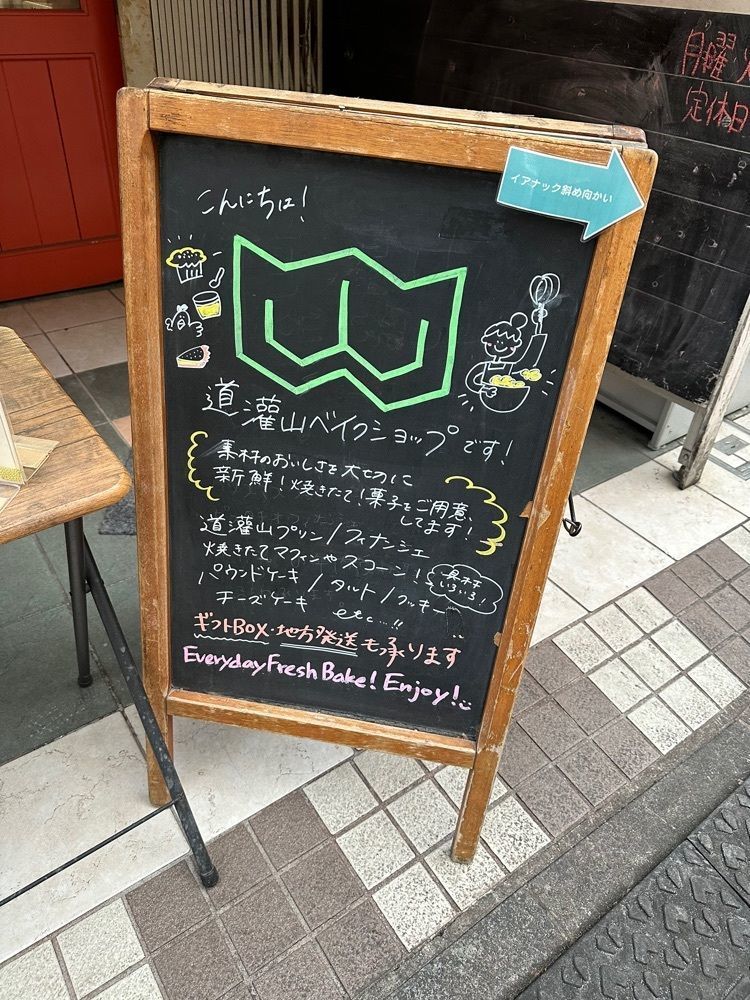 月曜
定休日
イアナック斜め向かい
こんにちは!
道灌山ベイクショップです!
素材のおいしさを大切に
新鮮!焼きたて!菓子をご用意
してます!
道灌山プリン/フィナンシェ
焼きたてマフィンやスコーン!
具材
いろいろ!
パウンドケーキ/タルト/クッキー
チーズケーキ etc...!!
ギフトBOX・地方発送も承ります
Everyday Fresh Bake! Enjoy!